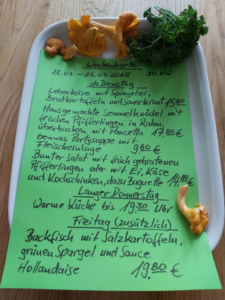 Wochenkarte
22.07 - 26.07.2024 30.KW
ab Dienstag
Leberkäse mit Spiegelei,
Bratkartoffeln und Sauerkraut 15,80
Hausgemachte Semmelknödel mit
frischen Pfifferlingen in Rahm,
überbacken mit Pancetta 17,80 €
Partysuppe mit
Fleischeinlage 9,80 €
Bunter Salat mit frisch gebratenen
Pfifferlingen oder mit Ei, Käse
und Kochschinken, dazu Baguette 14,80 €
Langer Donnerstag
Warme Küche bis 19:30 Uhr
Freitag (zusätzlich)
Backfisch mit Salzkartoffeln,
grünen Spargel und Sauce
Hollandaise 19,80 €